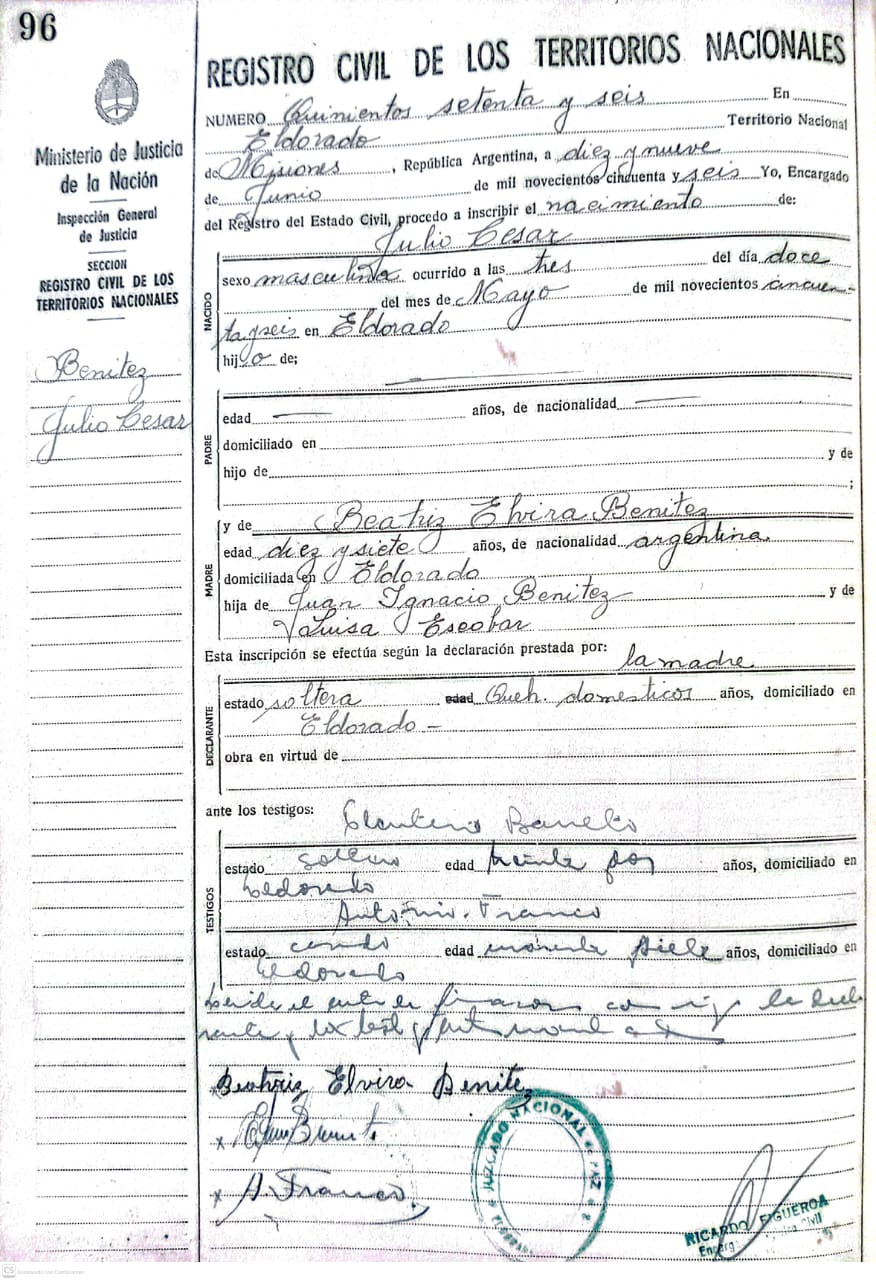 96
Ministerio de Justicia
de la Nación
Inspección General
de Justicia
SECCION
REGISTRO CIVIL DE LOS
TERRITORIOS NACIONALES
Benitez
Julio Cesar
REGISTRO CIVIL DE LOS TERRITORIOS NACIONALES
NUMERO Quinientos setenta y seis En
Eldorado Territorio Nacional
de Misiones, República Argentina, a diez y nueve
de Junio de mil novecientos cincuenta y seis Yo, Encargado
del Registro del Estado Civil, procedo a inscribir el nacimiento de:
Julio Cesar
NACIDO
sexo masculino ocurrido a las tres del día doce
del mes de Mayo de mil novecientos cincuen-
ta y seis en Eldorado
hijo de;
PADRE
edad — años, de nacionalidad —
domiciliado en
hijo de y de
;
MADRE
y de Beatriz Elvira Benitez
edad diez y siete años, de nacionalidad argentina.
domiciliada en Eldorado
hija de Juan Ignacio Benitez y de
Luisa Escobar
Esta inscripción se efectúa según la declaración prestada por: la madre
DECLARANTE
estado soltera edad Queh. domesticos años, domiciliado en
Eldorado -
obra en virtud de
ante los testigos:
TESTIGOS
estado soltero edad treinta años, domiciliado en
Eldorado
Antonio Franco
estado casado edad siete años, domiciliado en
Eldorado
Beatriz Elvira Benitez
A. Franco
JUZGADO NACIONAL de PAZ
ELDORADO
RICARDO FIGUEROA
Civil
CS Escaneado con CamScanner